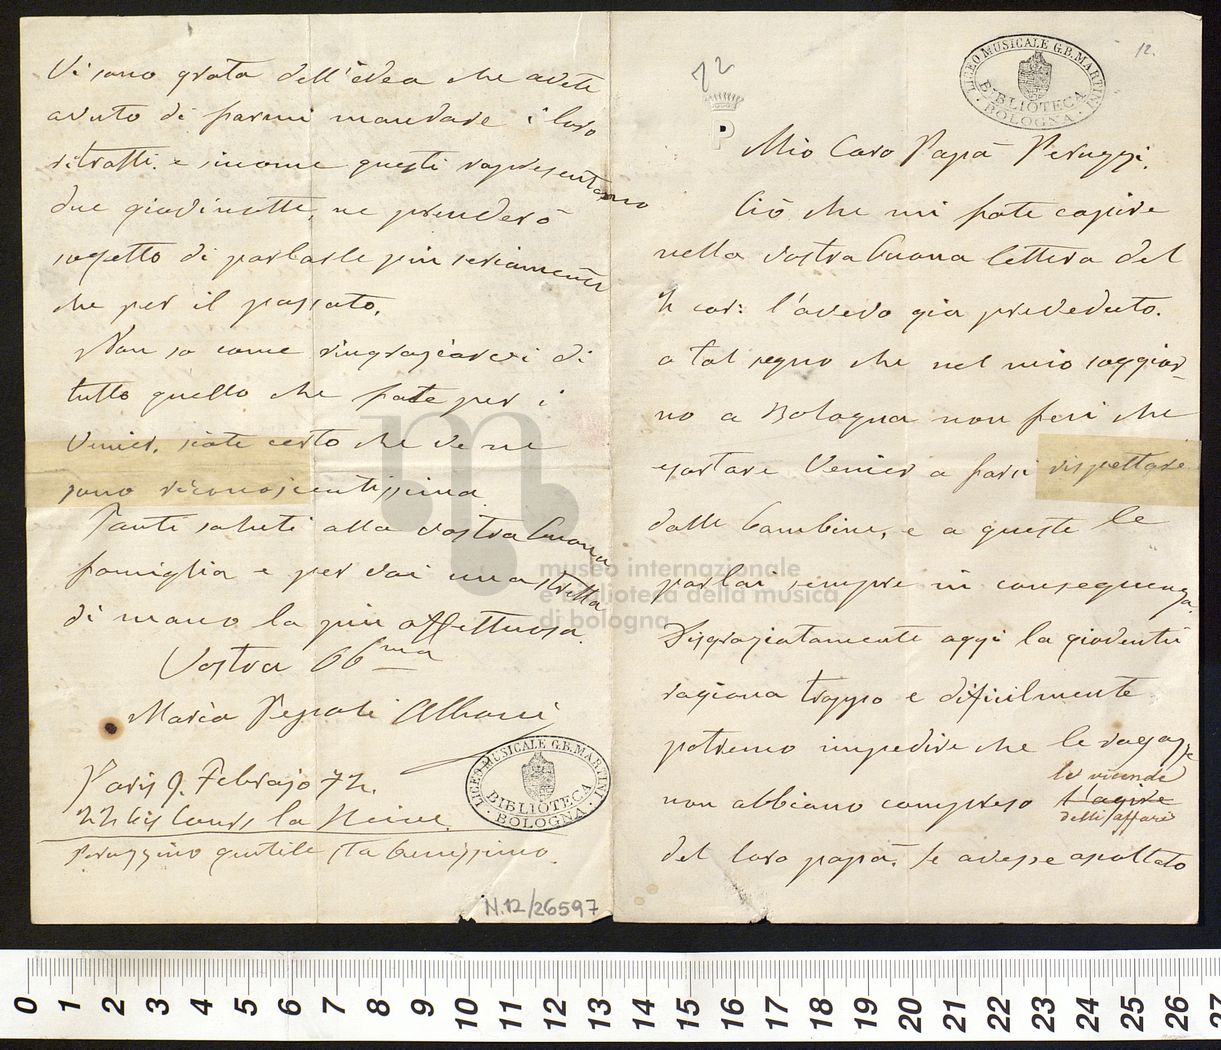 72
12.
LICEO MUSICALE G.B. MARTINI
BIBLIOTECA
BOLOGNA
P
Mio Caro Papà Peruzzi.
Ciò che mi fate capire
nella vostra buona lettera del
cor: l'avevo già preveduto.
a tal segno che nel mio soggior_
no a Bologna non feci che
esortare Venier a farsi rispettare
dalle bambine, e a queste le
parlai sempre in conseguenza.
Disgraziatamente oggi la gioventù
ragiona troppo e dificilmente
potremo impedire che le ragazze
non abbiano compreso l'agire le vicende
delli affari
del loro papà. Se avesse ascoltato
Vi sono grata dell'idea che avete
avuto di farmi mandare i loro
ritratti e siccome questi rapresentano
due giovinette, ne prenderò
sogetto di parlarle più seriamente
che per il passato.
Non so come ringraziarvi di
tutto quello che fate per i
Venier, siate certo che ve ne
sono riconoscentissima
Tanti saluti alla vostra buona
famiglia e per voi una stretta
di mano la più affettuosa.
Vostra Obb^ma
Maria Pepoli Alboni
Paris 9. Febrajo 72.
22 bis Cours la Reine.
Peruzzino gentile sta benissimo.
LICEO MUSICALE G.B. MARTINI
BIBLIOTECA
BOLOGNA
N.12/26597
museo internazionale
e biblioteca della musica
di bologna
0 1 2 3 4 5 6 7 8 9 10 11 12 13 14 15 16 17 18 19 20 21 22 23 24 25 26 27